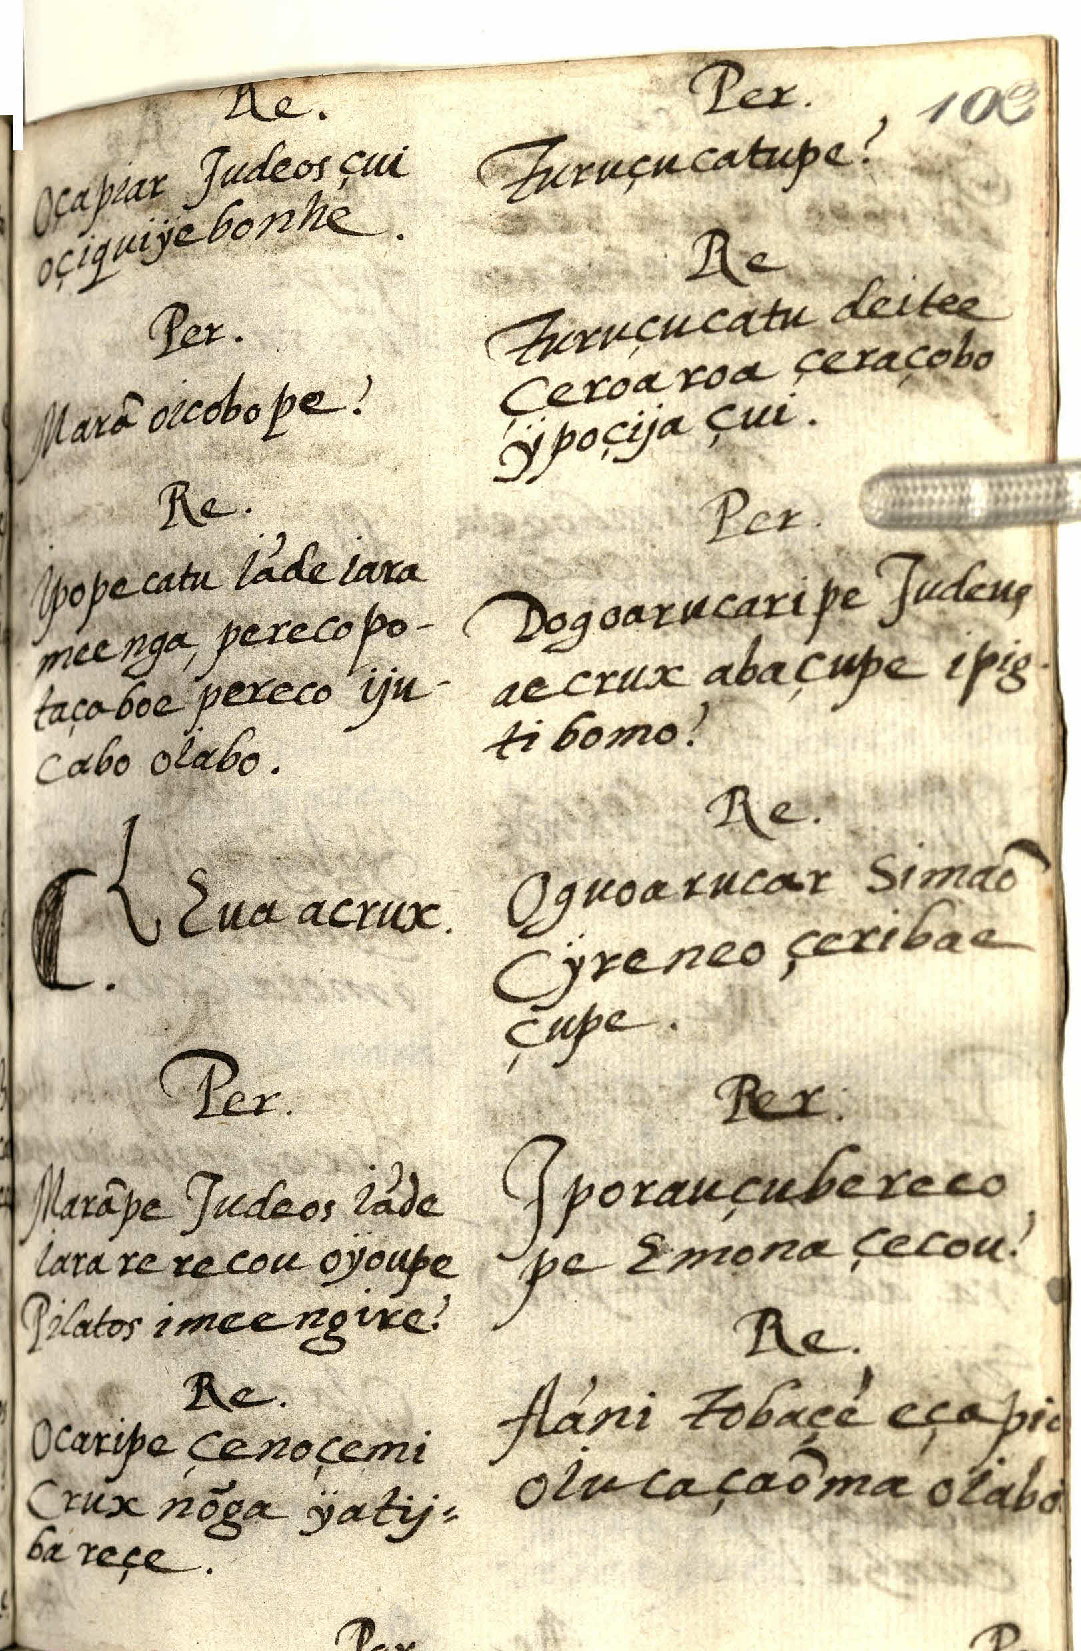 Re.
Oçapiar Judeos çui
oçiquiÿebonhe.
Per.
Marã oicobope?
Re.
Ipopecatu iãde iara
meenga, perecopo-
taçaboe pereco iju-
cabo oiabo.
Eua acrux.
Per.
Marãpe Judeos iãde
iara rerecou oÿoupe
Pilatos imeengire?
Re.
Ocaripe çenoçemi
Crux nõga ÿatij=
ba reçe.
Per.
Per.
Turuçucatupe?
Re
Turuçucatu deitee
Çeroaroa çeraçobo
ÿpoçija çui.
Per.
Dogoarucaripe Judeus
ae crux abaçupe ipig-
tibomo?
Re.
Oguoarucar Simaõ
Cÿreneo çeribae
çupe.
Per.
Iporauçubereco
pe Emona çecou?
Re.
Aáni Tobaçé eçapic
oiucaçaõma oiabo.